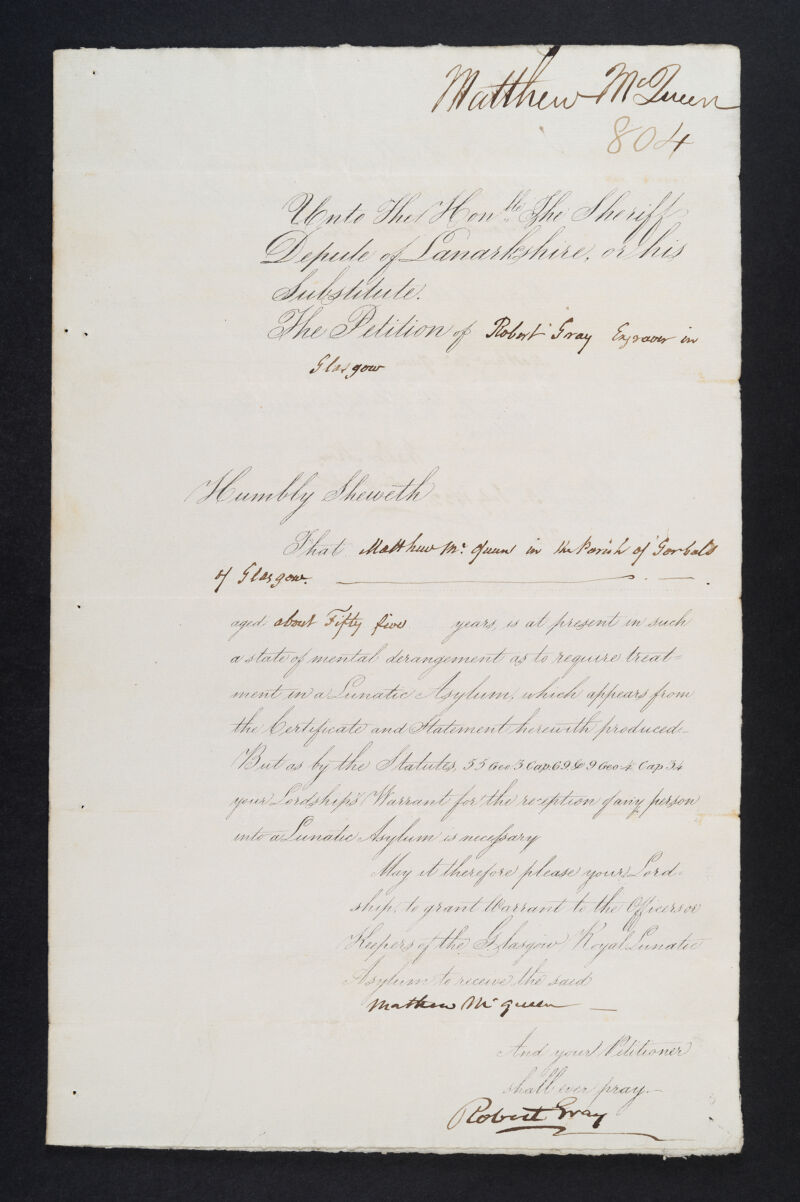 Matthew McQueen
804
Unto The Honble The Sheriff
Depute of Lanarkshire, or his
Substitute.
The Petition of Robert Gray Engraver in
Glasgow
Humbly Sheweth
That Matthew Mc Queen in the Parish of Gorbals
of Glasgow.
aged about Fifty five years, is at present in such
a state of mental derangement as to require treat=
ment in a Lunatic Asylum, which appears from
the Certificate and Statement herewith produced_
But as by the Statutes, 55 Geo 3. Cap. 69 & 9 Geo 4. Cap 34
your Lordship's Warrant for the reception of any person
into a Lunatic Asylum is necessary
May it therefore please your Lord=
ship, to grant Warrant to the Officers or
Keepers of the Glasgow Royal Lunatic
Asylum to receive the said
Mathew Mc queen
And your Petitioner
shall ever pray_
Robert Gray